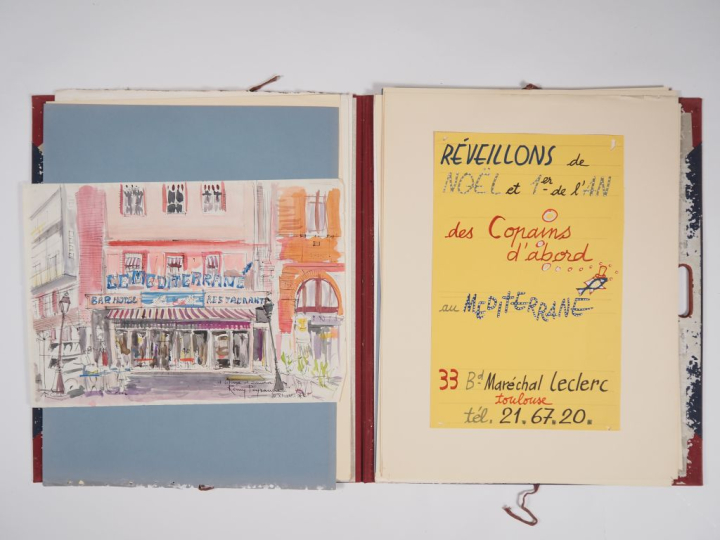 LE MEDITERRANÉ
BAR HOTEL RESTAURANT
RÉVEILLONS de
NOËL et 1er de l'AN
des Copains
d'abord
au MEDITERRANÉ
33 Bd Maréchal Leclerc
toulouse
tél. 21.67.20.